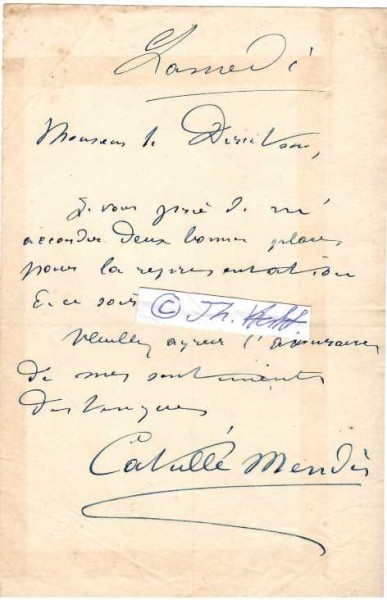 Samedi
Monsieur le Directeur,
Je vous prie de m'
accorder deux bonnes places
pour la représentation
de ce soir
© Th.
Veuillez agréer l'assurance
de mes sentiments
distingués
Catulle Mendès